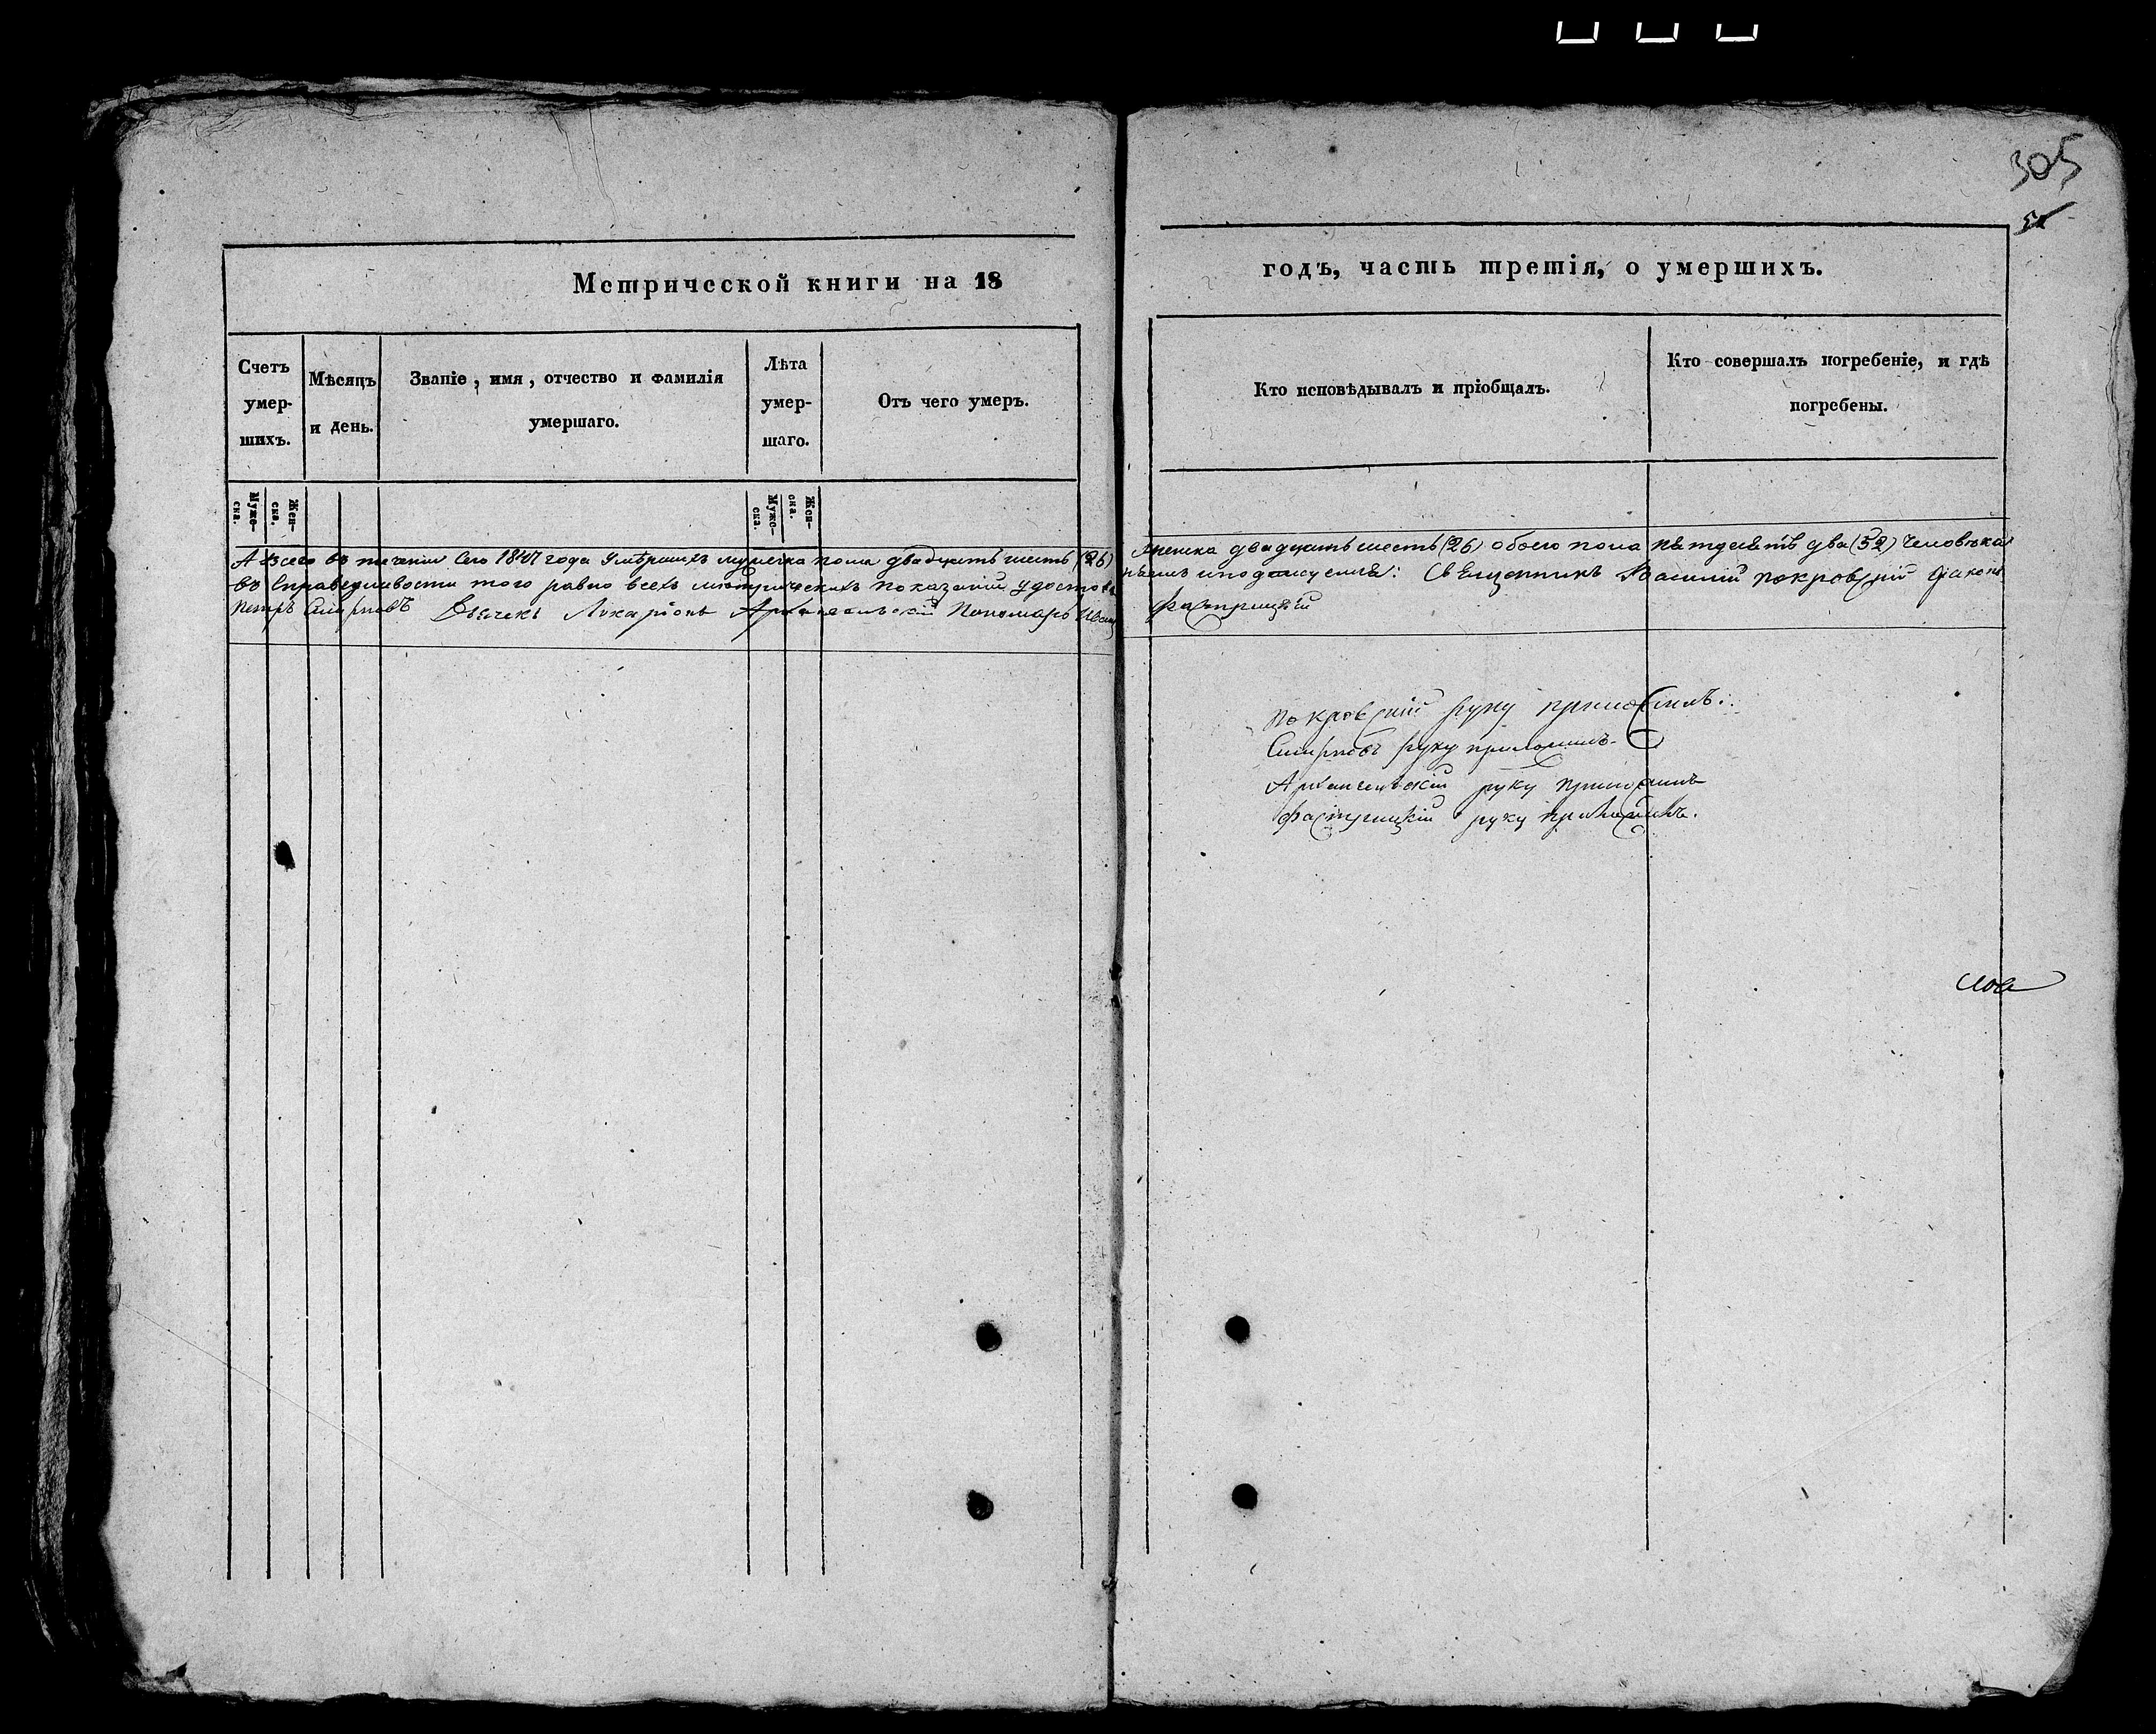 305
Метрической книги на 18
годъ, часть третія, о умершихъ.
Счетъ умер-шихъ.
Мѣсяцъ и день.
Званіе, имя, отчество и фамилія умершаго.
Лѣта умер-шаго.
Отъ чего умеръ.
Кто исповѣдывалъ и пріобщалъ.
Кто совершалъ погребеніе, и гдѣ погребены.
Муже-ска.
Жен-ска.
Муже-ска.
Жен-ска.
А всего въ теченіи сего 1847 года умѣршихъ мужеска пола двадцать шесть (26) женска двадцать шесть (26) обоего пола пятдесятъ два (52) человѣка
въ справедливости того равно всехъ метрическихъ показаній удостовѣ ряемъ и подписуемся: Священникъ Василій Покровскій Діаконъ
Петръ Смирновъ Дьячекъ Иларіонъ Архангельскій Пономарь Иванъ
Покровскій руку приложилъ:
Смирновъ руку приложилъ.
Архангельскій руку приложилъ
руку приложилъ.